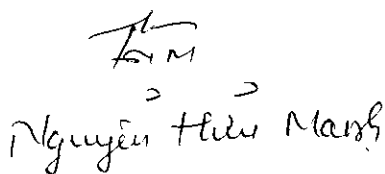 Nguyễn Hữu Mạnh